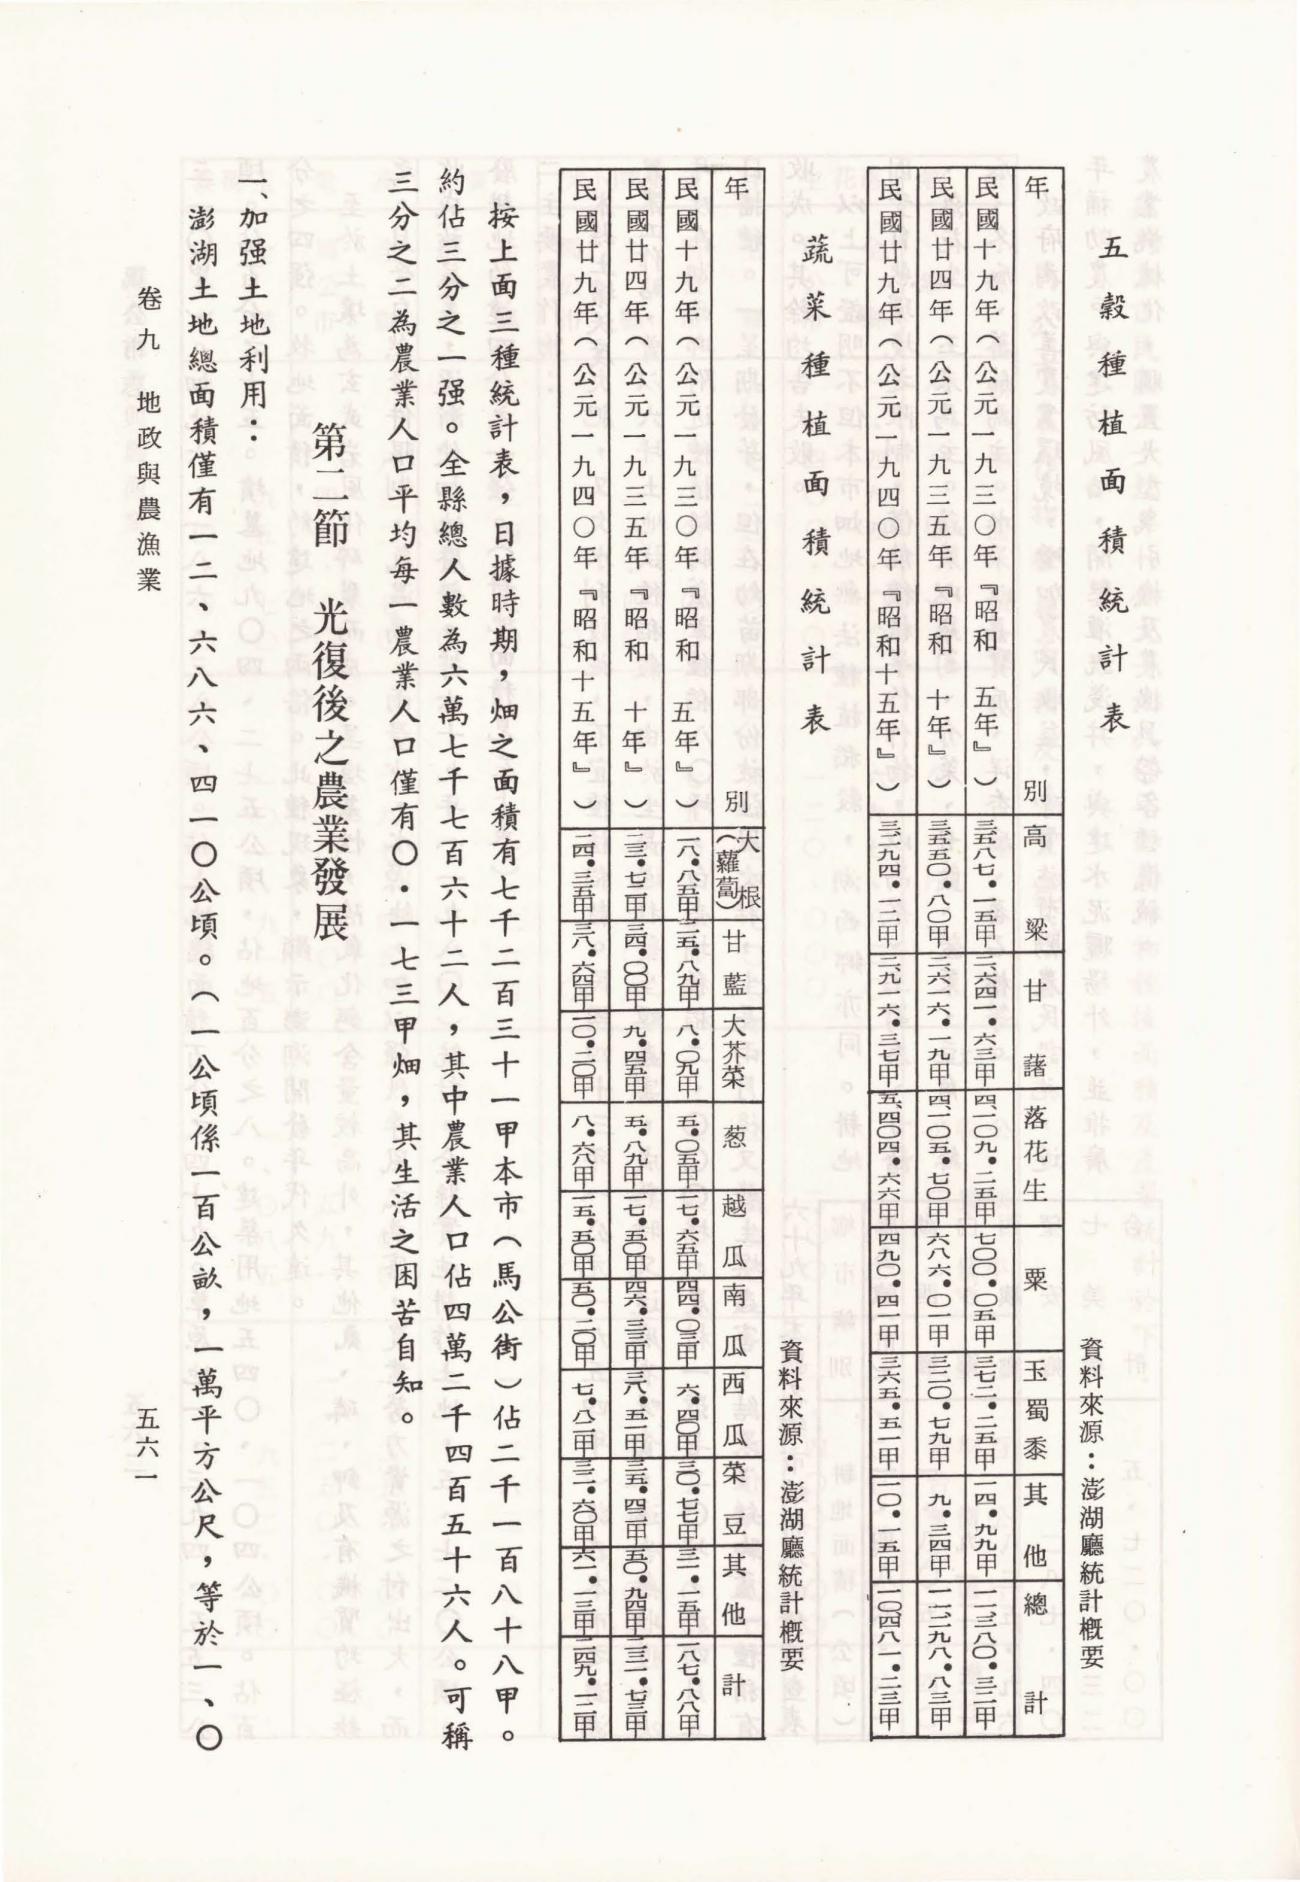 五穀種植面積統計表
資料來源：澎湖廳統計概要
年別 高粱 甘藷 落花生 粟 玉蜀黍 其他 總計
民國十九年（公元一九三○年『昭和 五年』） 三、五八七．一五甲 二、六四一．六三甲 四、一○九．二五甲 七○○．○五甲 三七二．二五甲 一四．九九甲 一一、三八○．三二甲
民國廿四年（公元一九三五年『昭和 十年』） 三、五五○．八○甲 二、六二六．一九甲 四、一○五．七○甲 六八六．○一甲 三二○．七九甲 九．三四甲 一一、二九八．八三甲
民國廿九年（公元一九四○年『昭和十五年』） 三、二九四．一二甲 二、九一六．三七甲 三、四○四．六六甲 四九○．四一甲 三六五．五一甲 一○．一五甲 一○四八一．二三甲
蔬菜種植面積統計表
資料來源：澎湖廳統計概要
年別 大根（蘿蔔） 甘藍 大芥菜 葱 越瓜 南瓜 西瓜 菜豆 其他 計
民國十九年（公元一九三○年『昭和 五年』） 一八．八五甲 二五．八九甲 八．○九甲 五．○五甲 一七．六五甲 四四．○三甲 六．四○甲 三○．七七甲 三一．一五甲 一八七．八八甲
民國廿四年（公元一九三五年『昭和 十年』） 一三．七二甲 三四．○○甲 九．四五甲 五．八九甲 一七．五○甲 四六．三三甲 一八．五一甲 三五．四二甲 五○．九四甲 二三一．七三甲
民國廿九年（公元一九四○年『昭和十五年』） 二四．三五甲 三八．六四甲 一○．二○甲 八．六八甲 一五．五○甲 五○．二○甲 七．八二甲 三二．六○甲 六一．一三甲 二四九．一二甲
按上面三種統計表，日據時期，畑之面積有七千二百三十一甲本市（馬公街）佔二千一百八十八甲。
約佔三分之一强。全縣總人數為六萬七千七百六十二人，其中農業人口佔四萬二千四百五十六人。可稱
三分之二為農業人口平均每一農業人口僅有○．一七三甲畑，其生活之困苦自知。
第二節 光復後之農業發展
一、加强土地利用：
澎湖土地總面積僅有一二、六八六、四一○公頃。（一公頃係一百公畝，一萬平方公尺，等於一、○
卷九 地政與農漁業
五六一